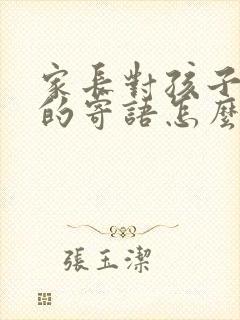 家長對孩子
的寄語怎麼
張玉潔